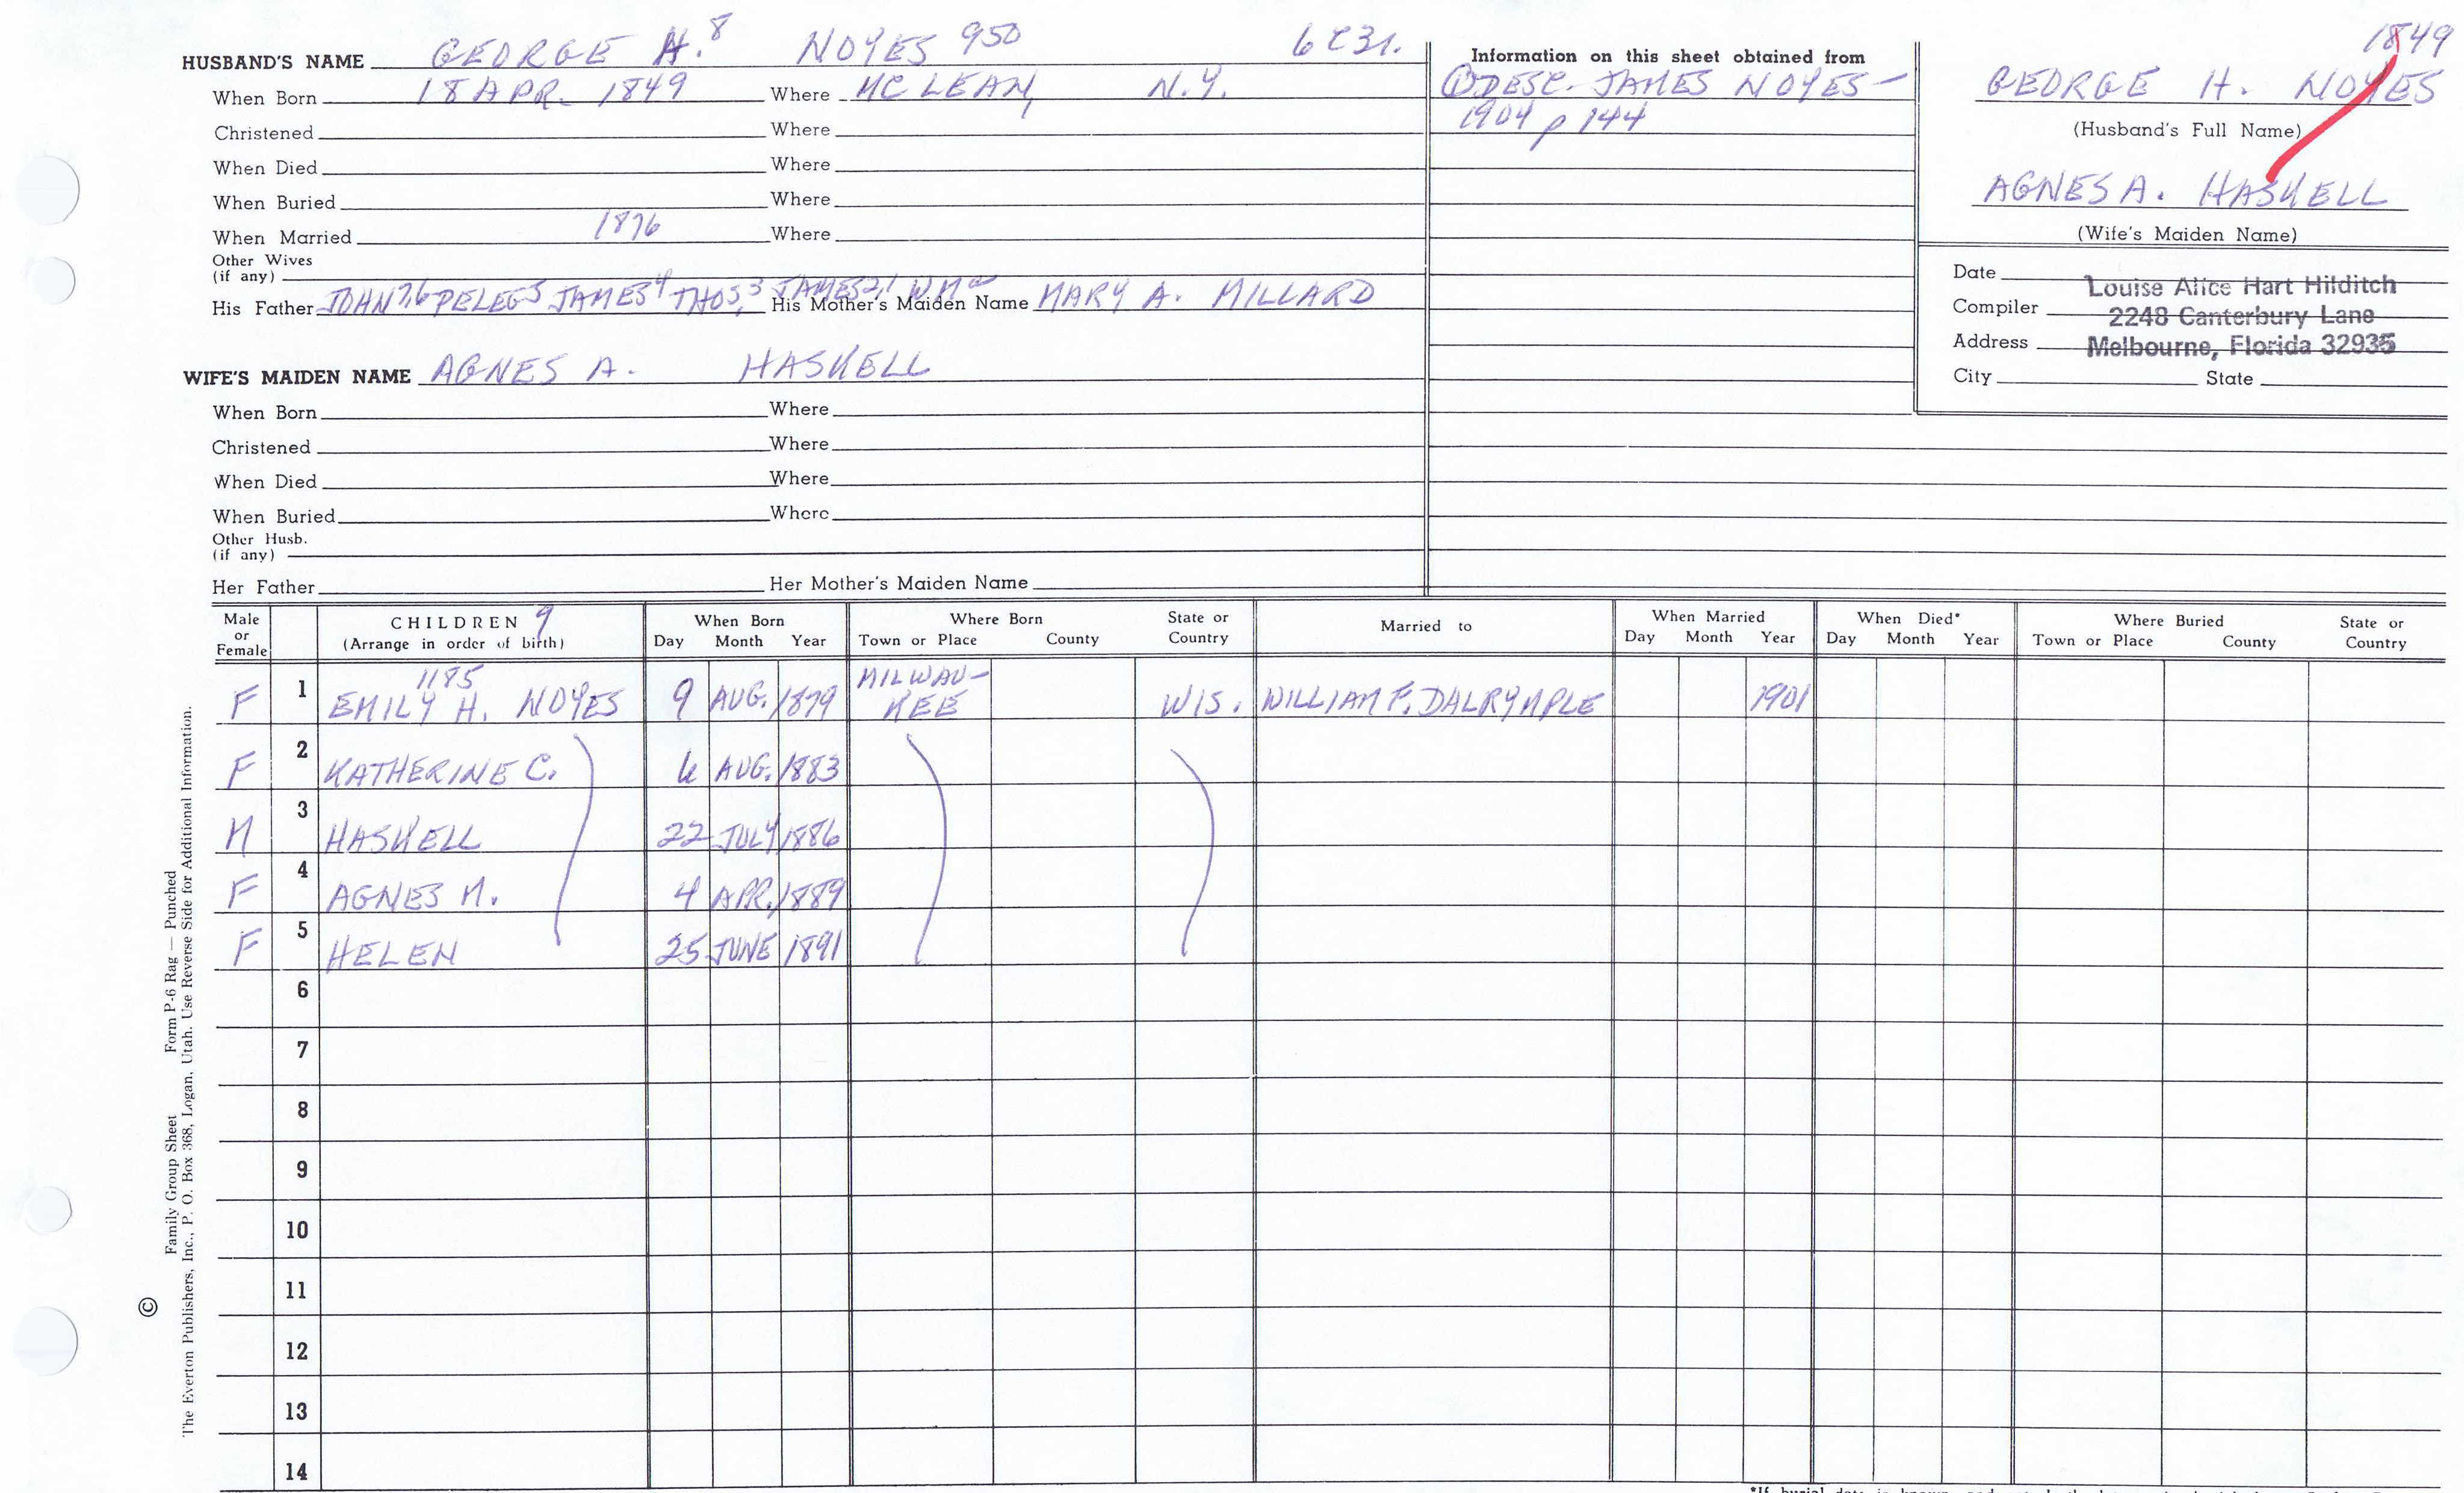 HUSBAND'S NAME GEORGE H.8 NOYES 950 6C31.
When Born 18 APR. 1849 Where MC LEAN, N.Y.
Christened Where
When Died Where
When Buried Where
When Married 1876 Where
Other Wives
(if any)
His Father JOHN7,6 PELEG5 JAMES4 THOS,3 JAMES2,1 WMo His Mother's Maiden Name MARY A. MILLARD
WIFE'S MAIDEN NAME AGNES A. HASKELL
When Born Where
Christened Where
When Died Where
When Buried Where
Other Husb.
(if any)
Her Father Her Mother's Maiden Name
Information on this sheet obtained from
① DESC. JAMES NOYES-
1904 p 144
1849
GEORGE H. NOYES
(Husband's Full Name)
AGNES A. HASKELL
(Wife's Maiden Name)
Date
Louise Alice Hart Hilditch
Compiler
2248 Canterbury Lane
Address
Melbourne, Florida 32935
City State
Male or Female CHILDREN 9 (Arrange in order of birth) When Born Day Month Year Where Born Town or Place County State or Country Married to When Married Day Month Year When Died* Day Month Year Where Buried Town or Place County State or Country
1185
F 1 EMILY H. NOYES 9 AUG. 1879 MILWAU-KEE WIS. WILLIAM F. DALRYMPLE 1901
F 2 KATHERINE C. 6 AUG. 1883
M 3 HASKELL 22 JULY 1886
F 4 AGNES M. 4 APR. 1889
F 5 HELEN 25 JUNE 1891
6
7
8
9
10
11
12
13
14
© Family Group Sheet Form P-6 Rag — Punched
The Everton Publishers, Inc., P. O. Box 368, Logan, Utah. Use Reverse Side for Additional Information.